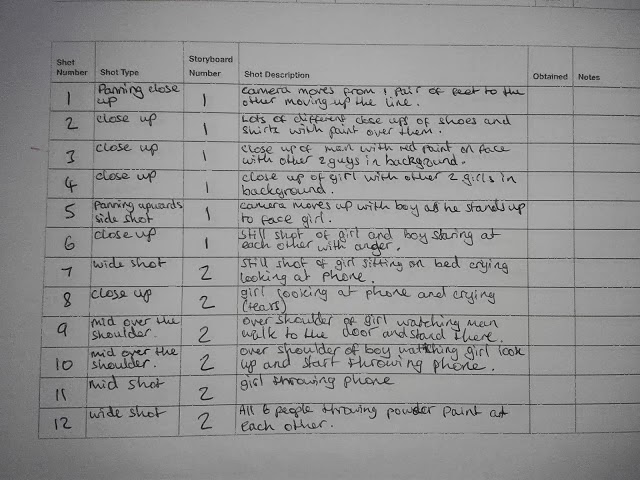 Shot Number Shot Type Storyboard Number Shot Description Obtained Notes
1 Panning close up 1 camera moves from 1 pair of feet to the
other moving up the line.
2 close up 1 Lots of different close ups of shoes and
shirts with paint over them.
3 close up 1 close up of man with red paint on face
with other 2 guys in background.
4 close up 1 close up of girl with other 2 girls in
background.
5 Panning upwards side shot 1 camera moves up with boy as he stands up
to face girl.
6 close up 1 Still shot of girl and boy staring at
each other with anger.
7 wide shot 2 Still shot of girl sitting on bed crying
looking at phone.
8 close up 2 girl looking at phone and crying
(tears)
9 mid over the shoulder. 2 over shoulder of girl watching man
walk to the door and stand there.
10 mid over the shoulder. 2 over shoulder of boy watching girl look
up and start throwing phone.
11 mid shot 2 girl throwing phone
12 wide shot 2 All 6 people throwing powder paint at
each other.